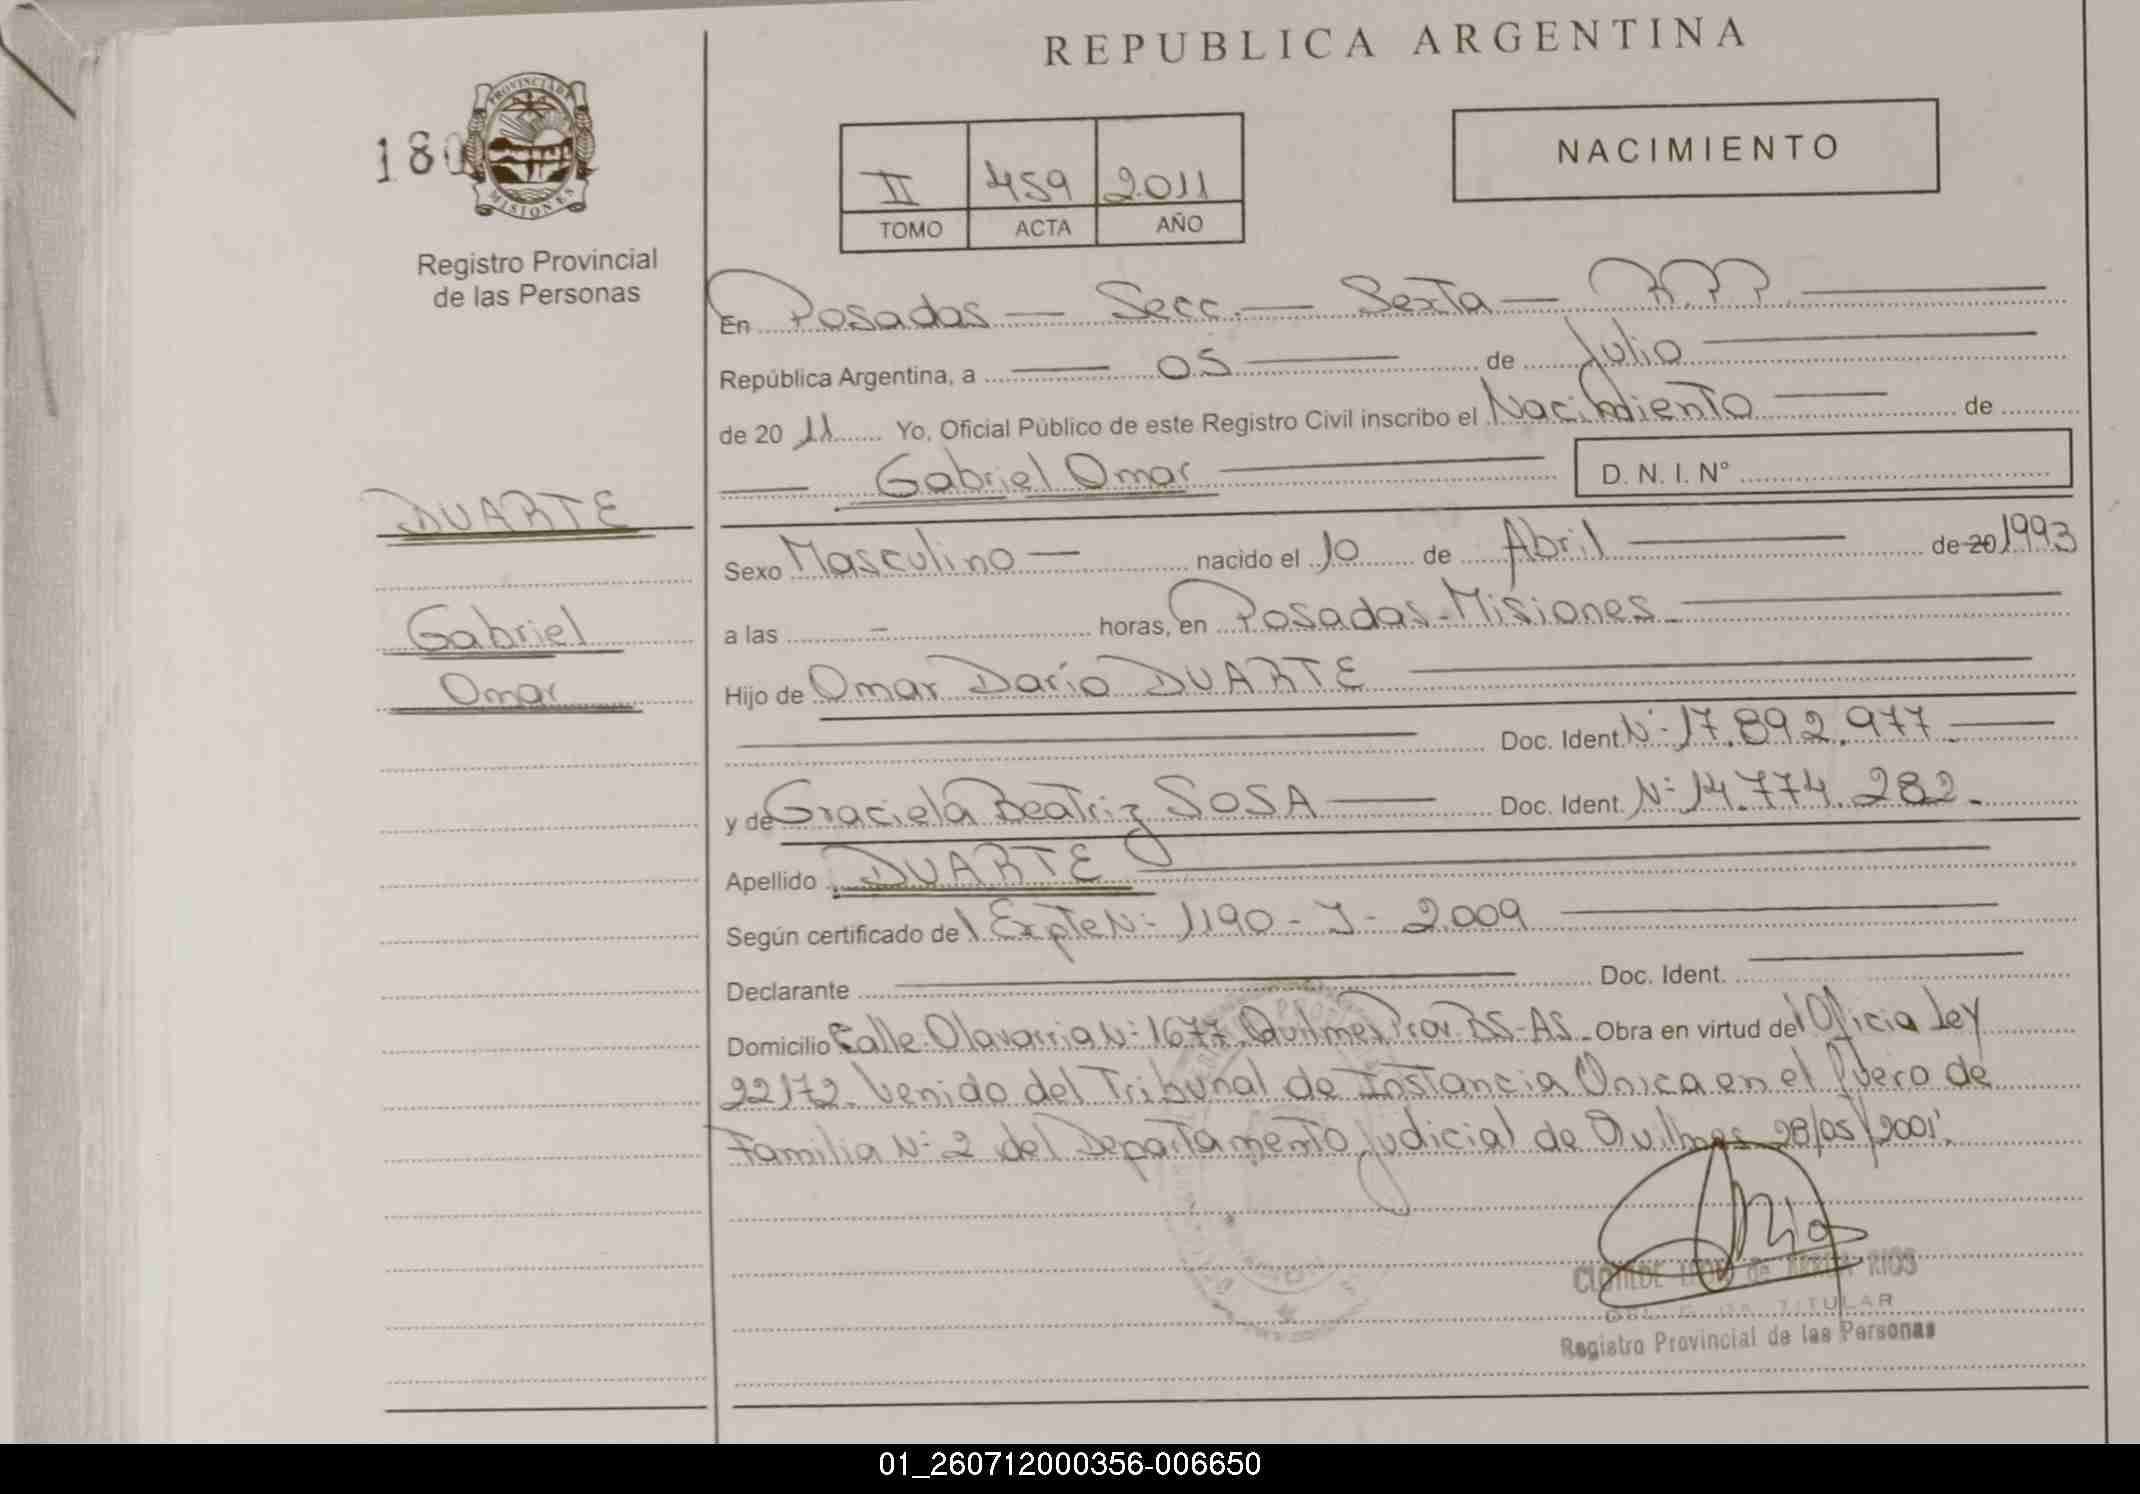 REPUBLICA ARGENTINA
180
PROVINCIA DE
MISIONES
Registro Provincial
de las Personas
II 459 2.011
TOMO ACTA AÑO
NACIMIENTO
En Posadas — Secc. — Sexta — R.P.P.
República Argentina, a — 05 — de Julio
de 20 11 Yo, Oficial Público de este Registro Civil inscribo el Nacimiento — de
Gabriel Omar — D. N. I. N°
DUARTE
Gabriel
Omar
Sexo Masculino — nacido el 10 de Abril — de 20 1993
a las - horas, en Posadas - Misiones
Hijo de Omar Darío DUARTE
Doc. Ident. N° 17.892.977.
y de Graciela Beatriz SOSA — Doc. Ident. N° 14.774.282.
Apellido DUARTE
Según certificado del Expte N° 1190 - J - 2.009
Declarante Doc. Ident.
Domicilio Calle Olavarria N° 1677 Quilmes Prov. BS-AS. Obra en virtud del Oficio Ley
22172. Venido del Tribunal de Instancia Unica en el Fuero de
Familia N° 2 del Departamento Judicial de Quilmes 28/05/2001.
CLOTILDE de RIOS
TITULAR
Registro Provincial de las Personas
01_260712000356-006650